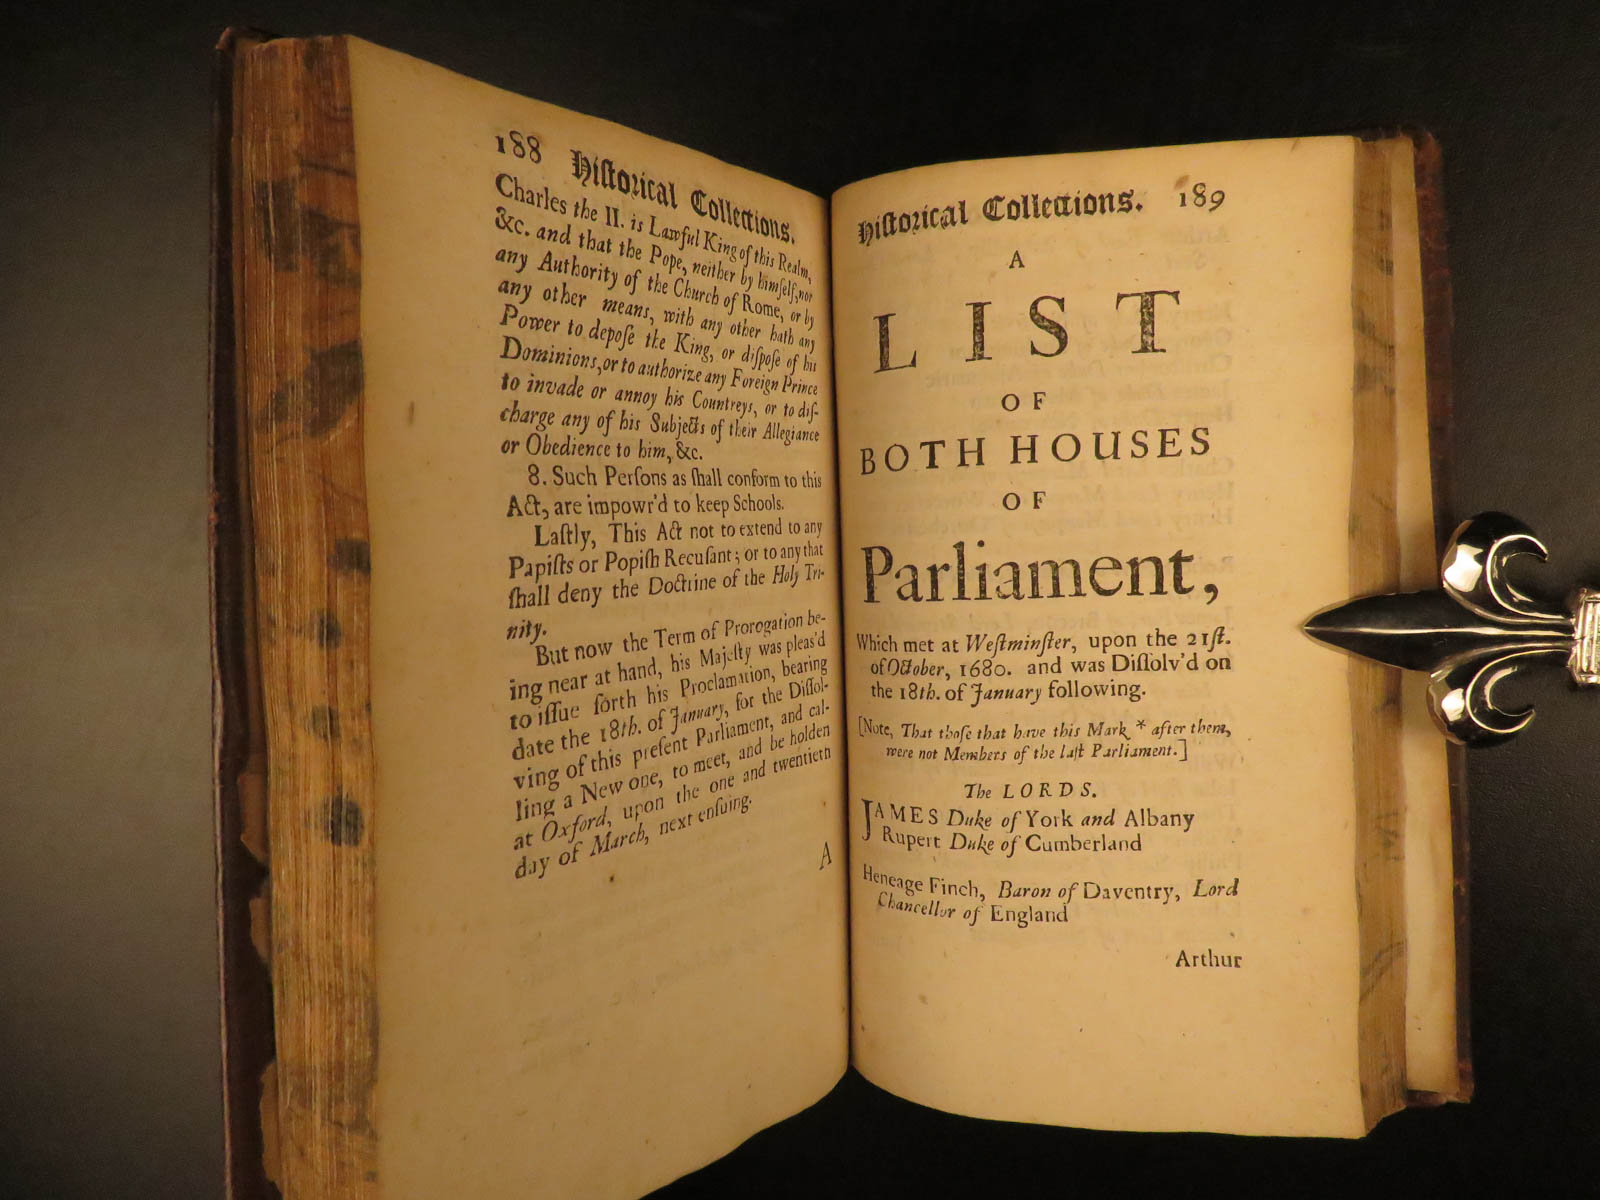 188 Hiſtorical Collections.
Charles the II. is Lawful King of this Realm,
&c. and that the Pope, neither by himſelf, nor
any Authority of the Church of Rome, or by
any other means, with any other hath any
Power to depoſe the King, or diſpoſe of his
Dominions, or to authorize any Foreign Prince
to invade or annoy his Countreys, or to diſ-
charge any of his Subjects of their Allegiance
or Obedience to him, &c.
8. Such Perſons as ſhall conform to this
Act, are impowr'd to keep Schools.
Laſtly, This Act not to extend to any
Papiſts or Popiſh Recuſant; or to any that
ſhall deny the Doctrine of the Holy Tri-
nity.
But now the Term of Prorogation be-
ing near at hand, his Majeſty was pleas'd
to iſſue forth his Proclamation, bearing
date the 18th. of January, for the Diſſol-
ving of this preſent Parliament, and cal-
ling a New one, to meet, and be holden
at Oxford, upon the one and twentieth
day of March, next enſuing.
A
Hiſtorical Collections. 189
A
LIST
OF
BOTH HOUSES
OF
Parliament,
Which met at Weſtminſter, upon the 21ſt.
of October, 1680. and was Diſſolv'd on
the 18th. of January following.
[Note, That thoſe that have this Mark * after them,
were not Members of the laſt Parliament.]
The LORDS.
JAMES Duke of York and Albany
Rupert Duke of Cumberland
Heneage Finch, Baron of Daventry, Lord
Chancellor of England
Arthur